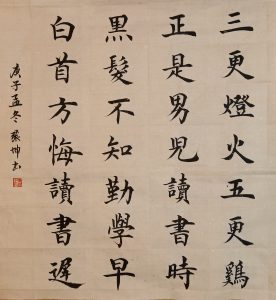 三更燈火五更鷄
正是男兒讀書時
黑髮不知勤學早
白首方悔讀書遲
庚子孟冬 坤书